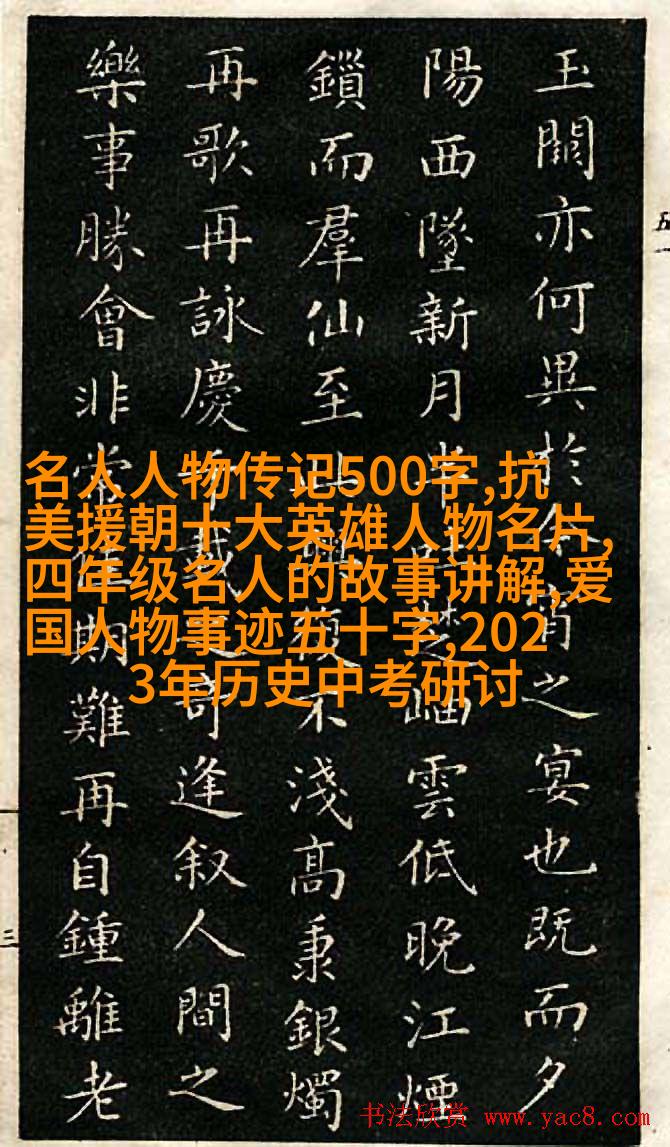 玉關亦何異於今宵之宴也既而夕
陽西墜新月半楚岫雲低晚江煙
鎖而羣仙至此不淺高秉銀燭
再歌再詠慶千載之奇逢叙人間之
樂事勝會非常佳期難再自鍾離老
名人人物传记500字,抗
美援朝十大英雄人物名片,
四年级名人的故事讲解,爱
国人物事迹五十字,202
3年历史中考研讨
五
三
书法欣赏 www.yac8.com